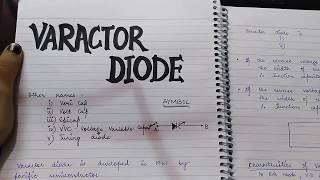 VARACTOR
DIODE
Other names -
i) Vari Cap
ii) Volt Cap
iii) Epicap
iv) VVC, Voltage Variable
v) Tuning diode
SYMBOL
A
B
Varactor diode is developed in 1961 by
pacific semiconductor.
Varactor diode is
i)
ii)
If the reverse voltage
the width of
junction
If the reverse
the width
junction
Characteristics of